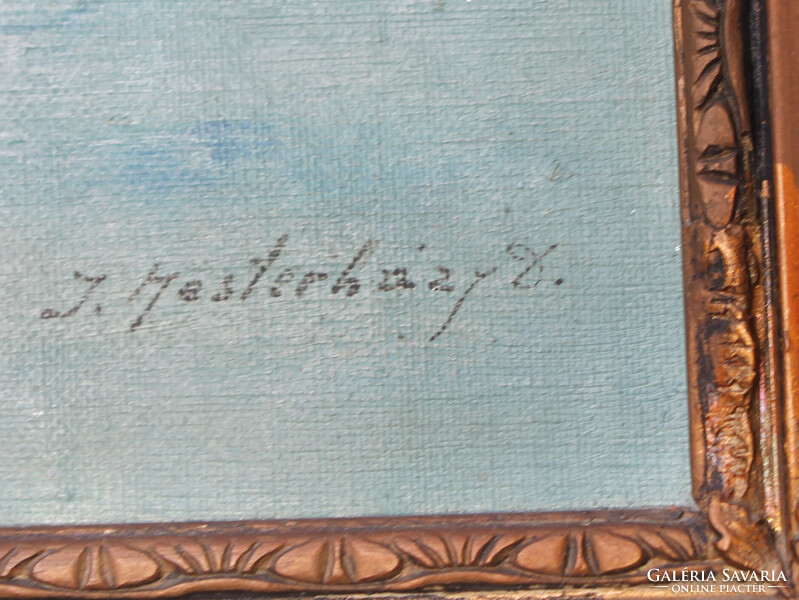 J. Mesterházy D.
GALÉRIA SAVARIA
ONLINE PIACTÉR